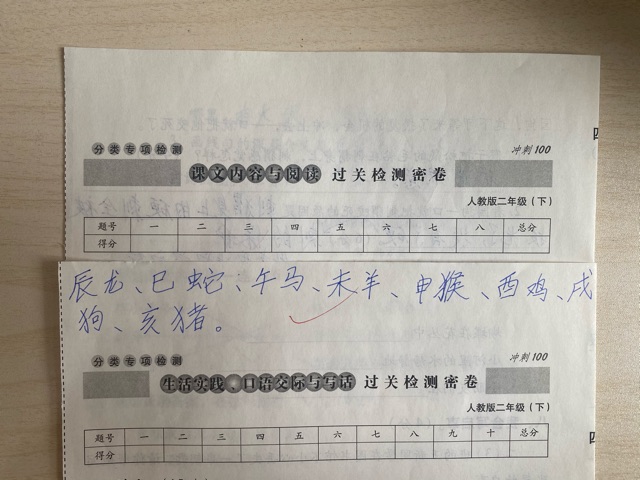 分类专项检测
冲刺100
课文内容与阅读 过关检测密卷
人教版二年级（下）
题号 一 二 三 四 五 六 七 八 总分
得分
辰龙、巳蛇、午马、未羊、申猴、酉鸡、戌
狗、亥猪。
分类专项检测
冲刺100
生活实践、口语交际与写话 过关检测密卷
人教版二年级（下）
题号 一 二 三 四 五 六 七 八 九 十 总分
得分